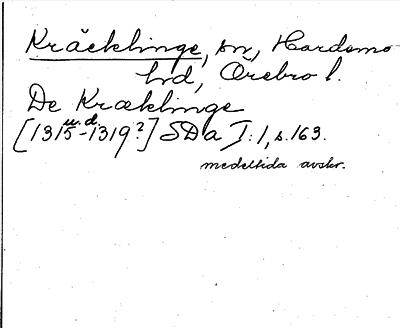 Kräcklinge, sn, Hardemo
hd, Örebro l.
De Kræklinge
u.d.
[1315-1319?] SDa I:1, s.163.
medeltida avskr.